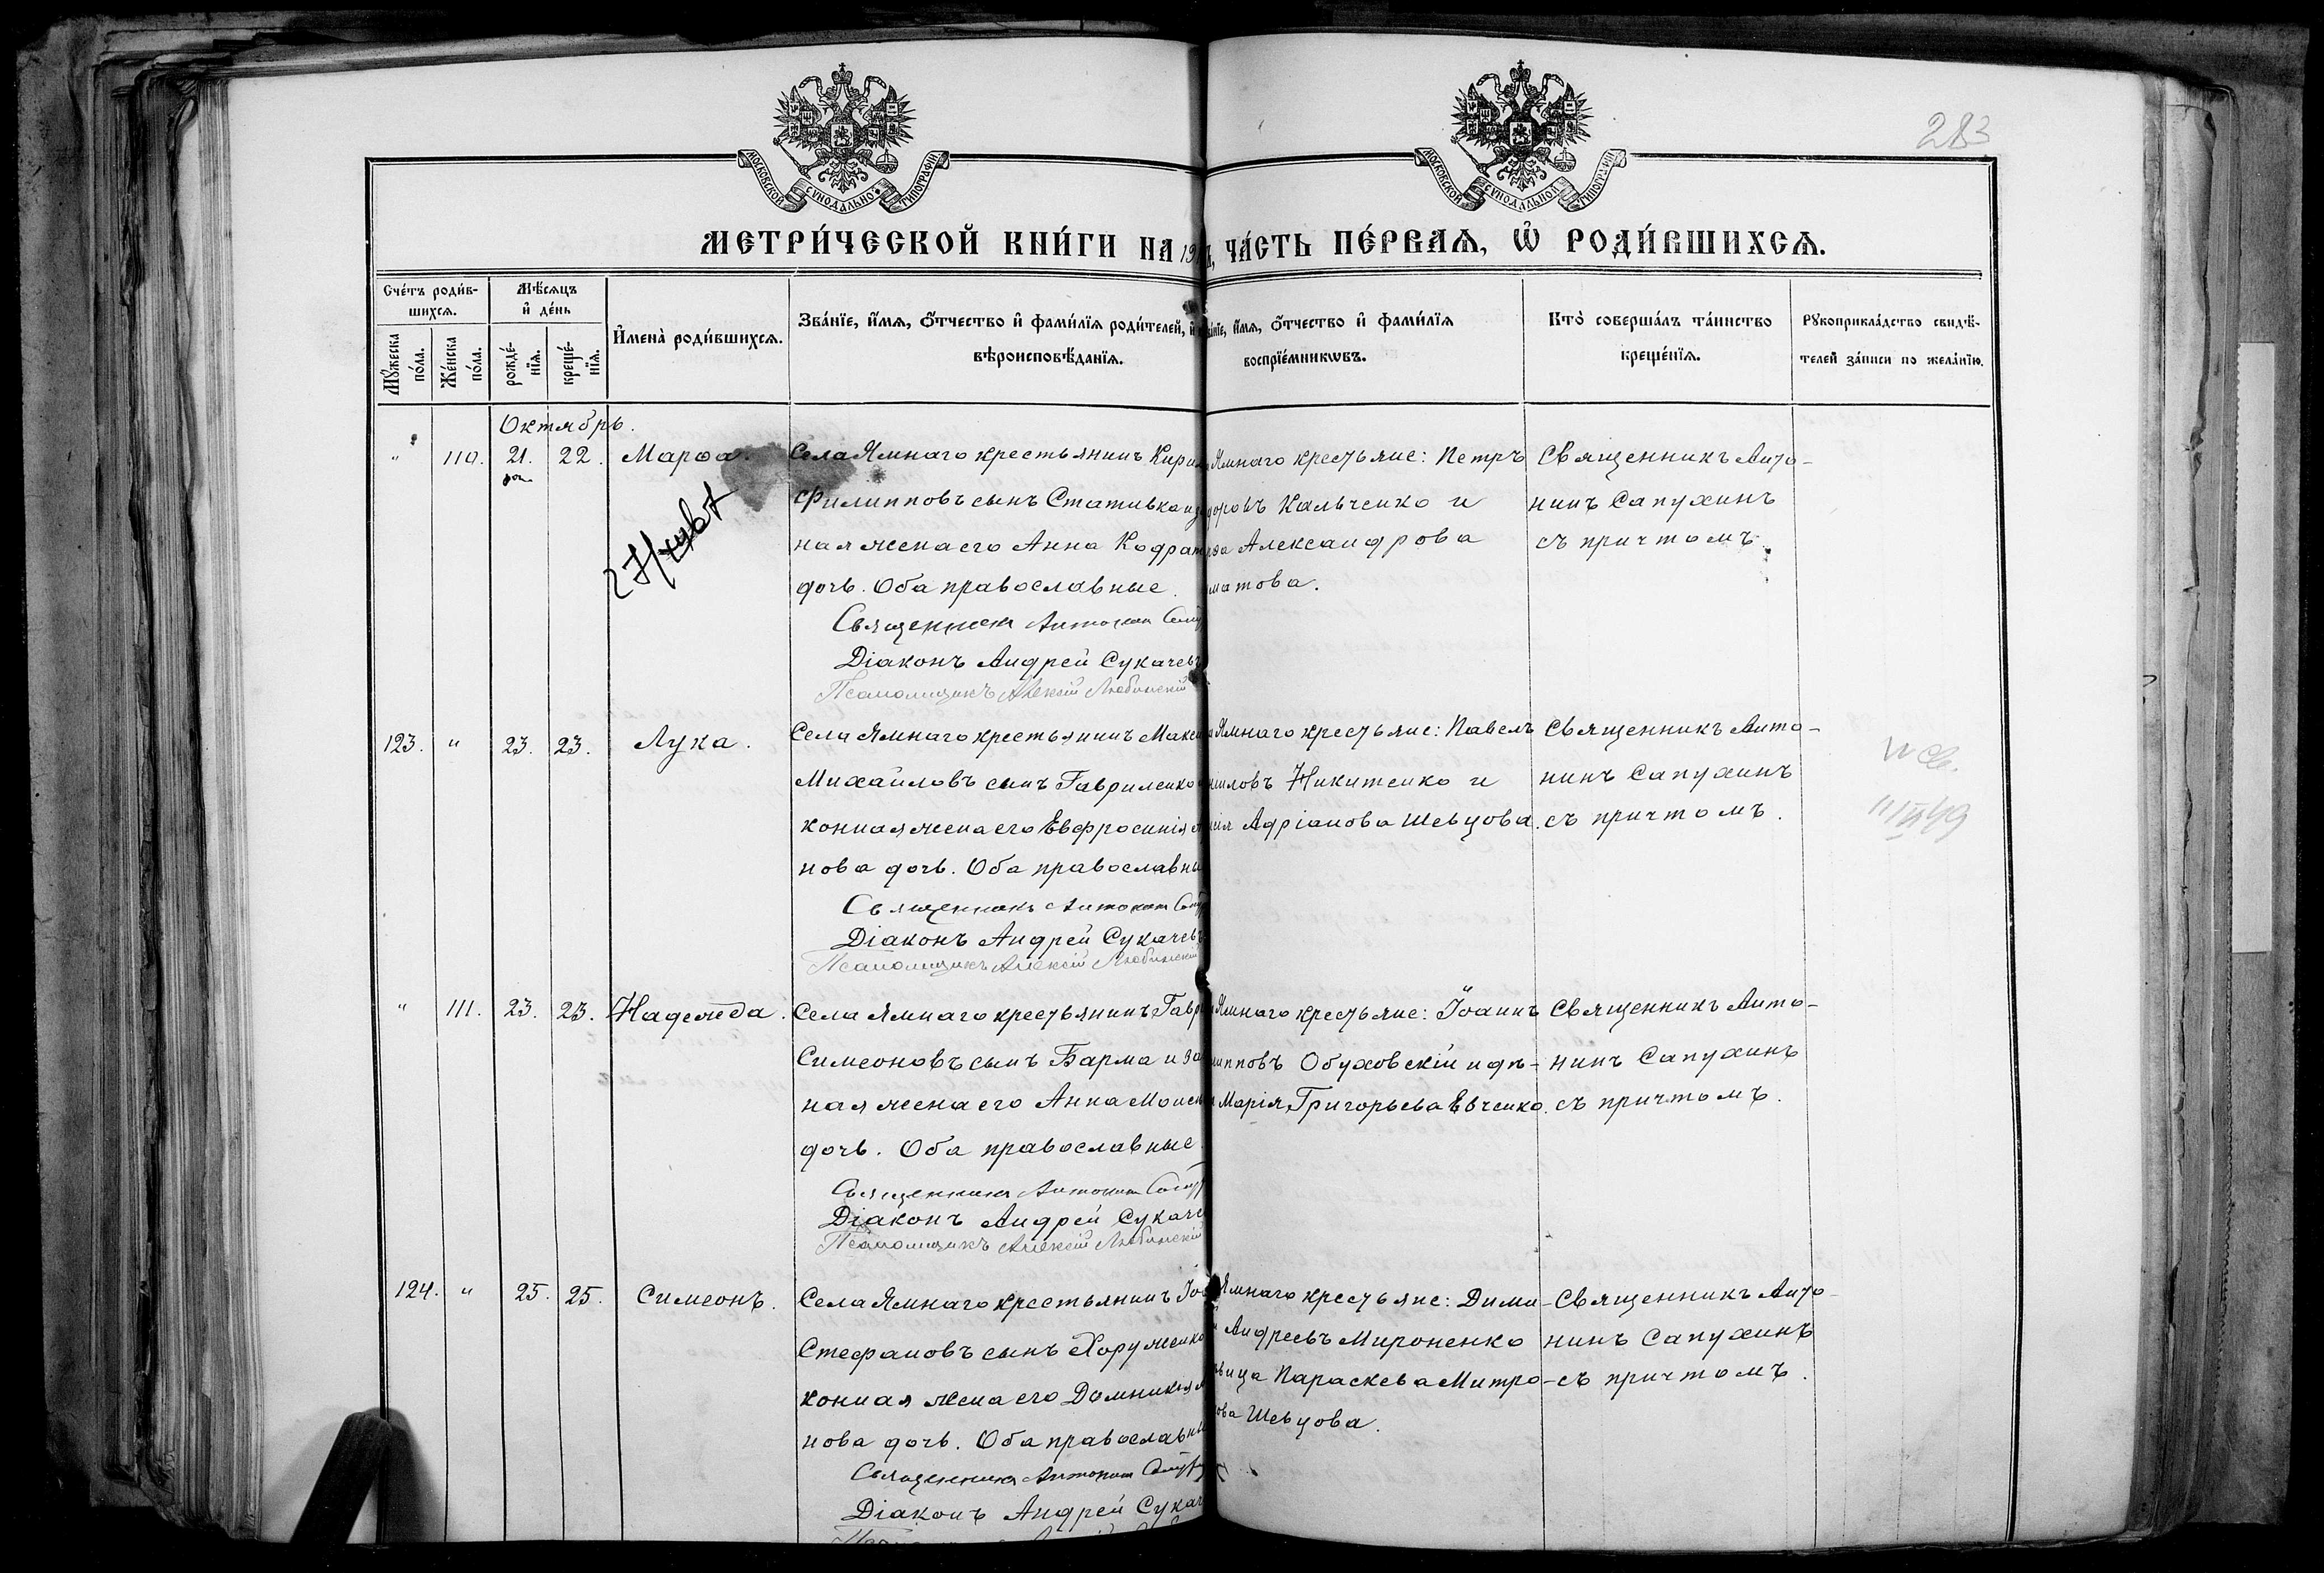 283
МОСКОВСКОЙ СѴНОДАЛЬНОЙ ТИПОГРАФІИ
МОСКОВСКОЙ СѴНОДАЛЬНОЙ ТИПОГРАФІИ
МЕТРИ́ЧЕСКОЙ КНИ́ГИ НА 191
ЧА́СТЬ ПЕ́РВАѦ, Ѡ҆ РОДИ́ВШИХСѦ.
Сче́тъ роди́в-
шихсѧ.
Мѣ́сѧцъ
и҆ де́нь
И҆мена̀ роди́вшихсѧ.
Зва́нїе, и҆́мѧ, ѻ҆́тчество и҆ фами́лїѧ роди́телей, и҆
вѣроисповѣ́данїѧ.
Мꙋ́жеска по́ла.
Же́нска по́ла.
рожде́-нїѧ.
креще́-нїѧ.
Зва́нїе, и҆́мѧ, ѻ҆́тчество и҆ фами́лїѧ
воспрїе́мникѡвъ.
Кто̀ соверша́лъ та́инство
креще́нїѧ.
Рꙋкоприкла́дство свидѣ́-
телей за́писи по жела́нїю.
Октябрь.
" 110. 21. 22. Марѳа.
Села Ямнаго крестьянинъ Кирил
Филипповъ сынъ Стативка и за
ная жена его Анна Кодрат
дочь. Оба православные.
Священникъ Антонин Сапу
Діаконъ Андрей Сукачевъ
Псаломщикъ Алексій Любинскій
Ямнаго крестьяне: Петръ
доровъ Кальченко и
Александрова
матова.
Священникъ Анто-
нинъ Сапухинъ
съ причтомъ.
123. " 23. 23. Лука.
Села Ямнаго крестьянинъ Макси
Михайловъ сынъ Гавриленко
конная жена его Евфросинія
нова дочь. Оба православны
Священникъ Антонин Сапу
Діаконъ Андрей Сукачевъ
Псаломщикъ Алексій Любинскій
Ямнаго крестьяне: Павелъ
ииловъ Никитенко и
нія Адріанова Шевцова.
Священникъ Анто-
нинъ Сапухинъ
съ причтомъ.
" 111. 23. 23. Надежда.
Села Ямнаго крестьянинъ Гавр
Симеоновъ сынъ Барма и за
ная жена его Анна Моисе
дочь. Оба православные
Священникъ Антонин Сапу
Діаконъ Андрей Сукаче
Псаломщикъ Алексій Любинскій
Ямнаго крестьяне: Іоаннъ
липповъ Обуховскій и дѣ-
Марія Григорьева Евченко.
Священникъ Анто-
нинъ Сапухинъ
съ причтомъ.
124. " 25. 25. Симеонъ.
Села Ямнаго крестьянинъ Іоа
Стефановъ сынъ Хоруженко
конная жена его Домникия
нова дочь. Оба православны
Священникъ Антонин Сапу
Діаконъ Андрей Сукач
Ямнаго крестьяне: Дими-
й Андреевъ Мироненко
вица Параскева Митро-
ова Шевцова.
Священникъ Анто-
нинъ Сапухинъ
съ причтомъ.